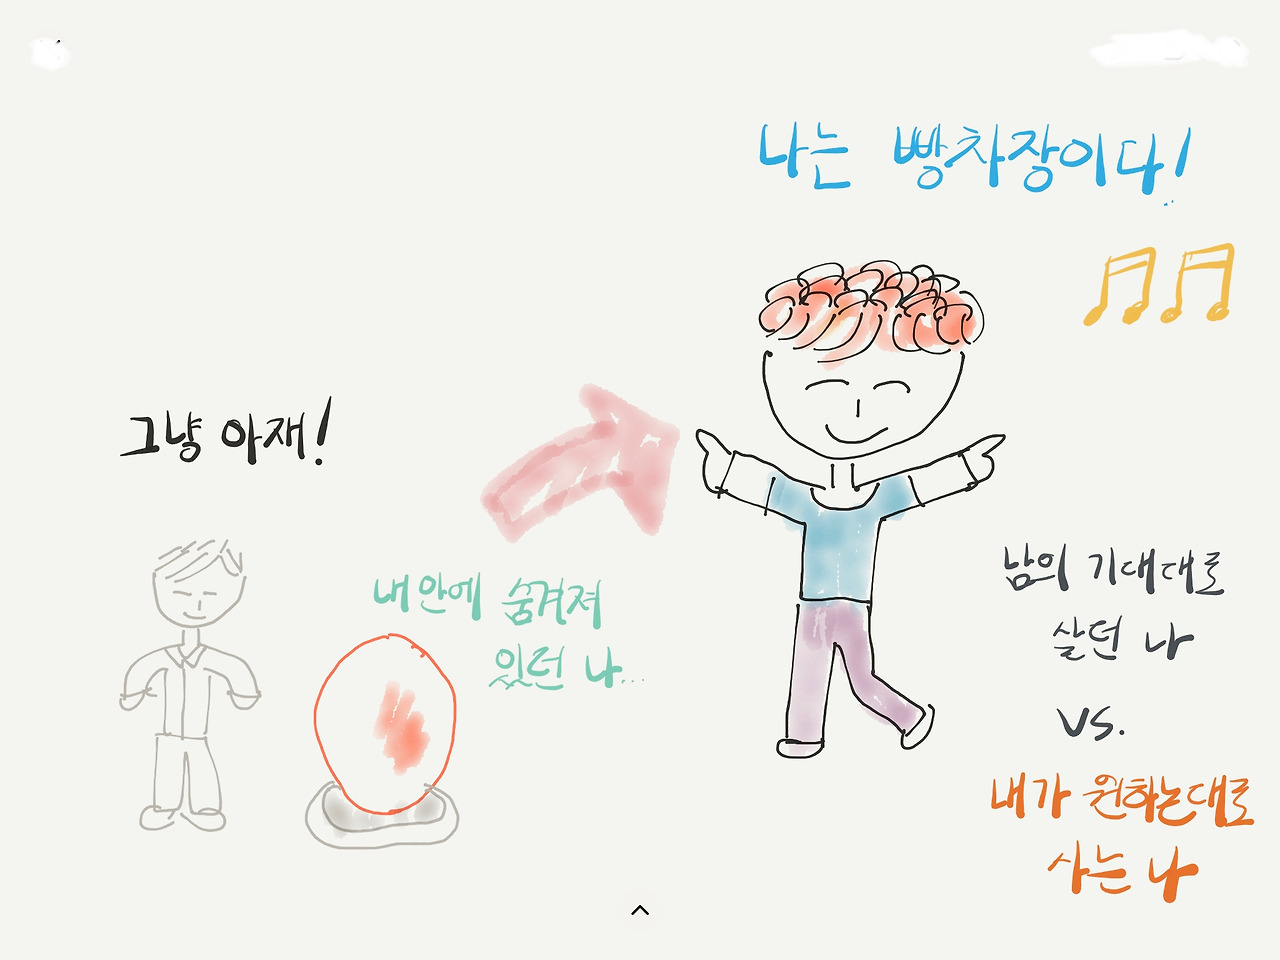 나는 빵차장이다!
그냥 아재!
내 안에 숨겨져
있던 나...
남의 기대대로
살던 나
vs.
내가 원하는대로
사는 나